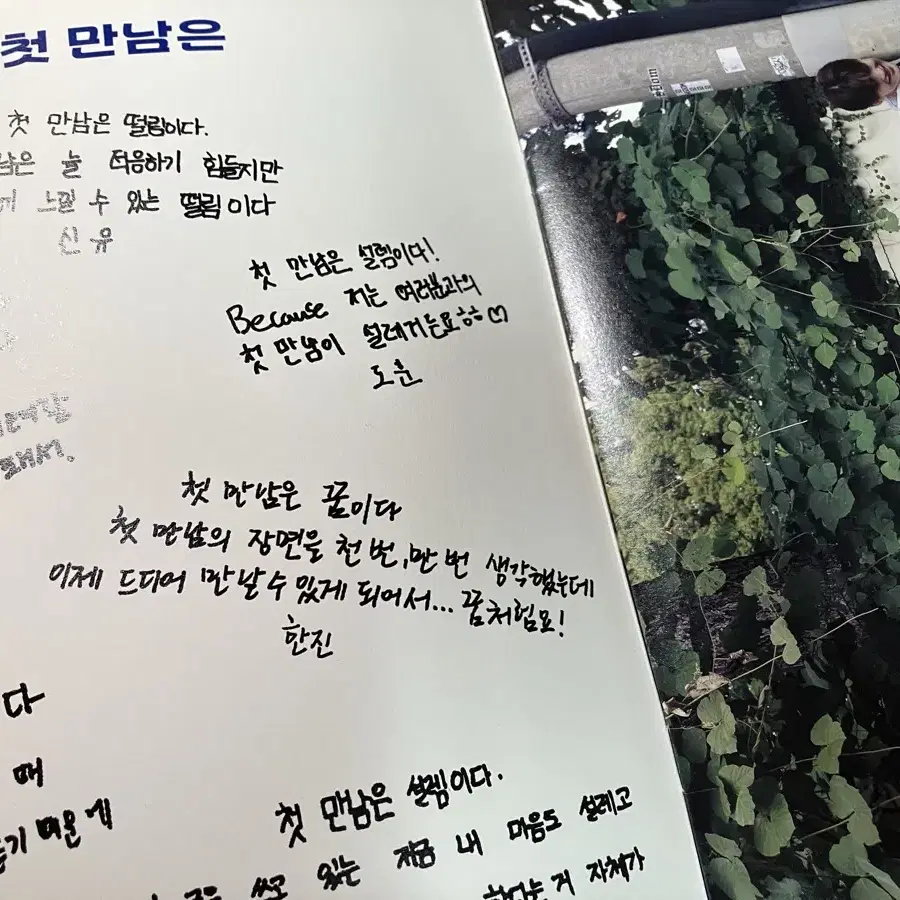 첫 만남은
첫 만남은 떨림이다.
늘 적응하기 힘들지만
느낄 수 있는 떨림이다
신유
첫 만남은 설렘이다!
Because 저는 여러분과의
첫 만남이 설레거든요ㅎㅎ♡
도훈
래서.
첫 만남은 꿈이다
첫 만남의 장면을 천 번, 만 번 생각했는데
이제 드디어 만날 수 있게 되어서... 꿈처럼요!
한진
다
때
첫 만남은 설렘이다.
쓰고 있는 지금 내 마음도 설레고
거 자체가